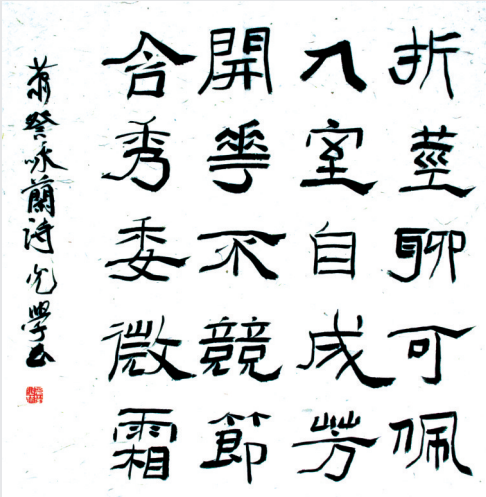 折莖聊可佩
入室自成芳
開華不競節
含秀委微霜
蕭詧咏蘭詩學書